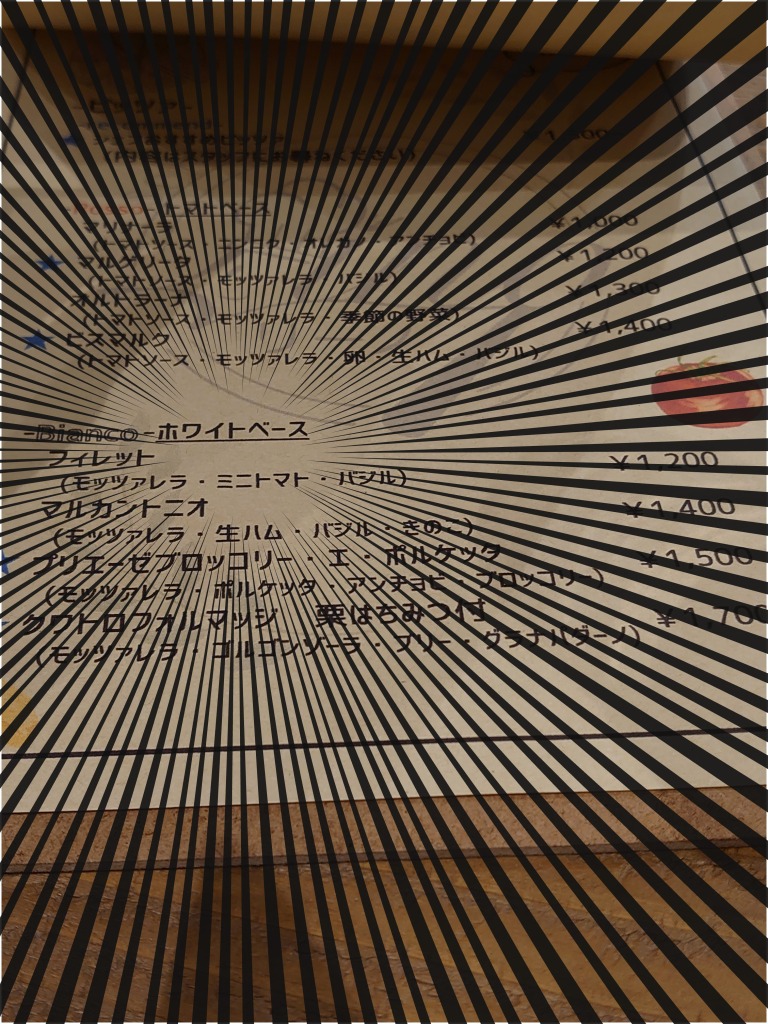 -ピッツァ-
-Recommend-
★ シェフおすすめピッツァ ¥1,500
(内容はスタッフにお尋ねください)
-Rosso-トマトベース
マリナーラ ¥1,000
(トマトソース・ニンニク・オレガノ・アンチョビ)
★ マルゲリータ ¥1,200
(トマトソース・モッツァレラ・バジル)
オルトラーナ ¥1,300
(トマトソース・モッツァレラ・季節の野菜)
★ ビスマルク ¥1,400
(トマトソース・モッツァレラ・卵・生ハム・バジル)
-Bianco-ホワイトベース
フィレット ¥1,200
(モッツァレラ・ミニトマト・バジル)
マルカントニオ ¥1,400
(モッツァレラ・生ハム・バジル・きのこ)
プリエーゼブロッコリー・エ・ポルケッタ ¥1,500
(モッツァレラ・ポルケッタ・アンチョビ・ブロッコリー)
クワトロフォルマッジ 栗はちみつ付 ¥1,700
(モッツァレラ・ゴルゴンゾーラ・ブリー・グラナパダーノ)